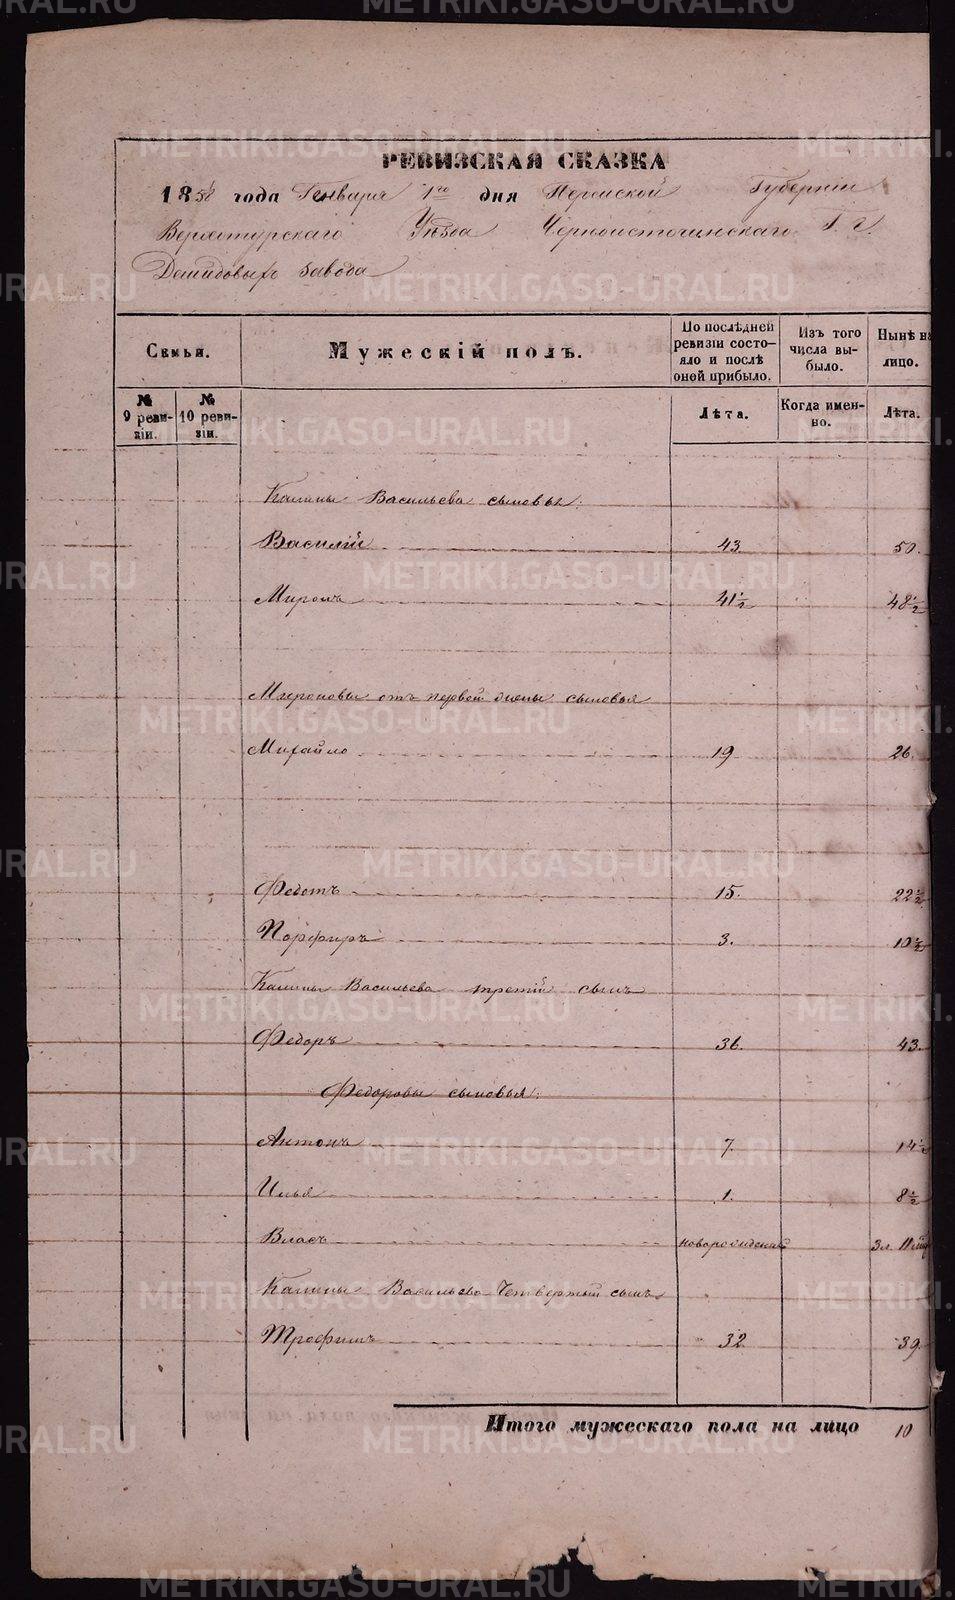 РЕВИЗСКАЯ СКАЗКА
1858 года Генваря 1го дня Пермской Губернiи
Верхотурскаго Уѣзда Черноисточинскаго Г. г.
Демидовыхъ завода
Семьи.
Мужескiй полъ.
По послѣдней ревизiи состо-
яло и послѣ
оной прибыло.
Изъ того
числа вы-
было.
Нынѣ на
лицо.
№
9 реви-
зiи.
№
10 реви-
зiи.
Лѣта.
Когда имен-
но.
Лѣта.
Калины Васильева сыновья:
Василiй 43. 50.
Миронъ 41½ 48½
Мироновы отъ первой жены сыновья
Михайло 19. 26.
Федотъ 15. 22½
Порфиръ 3. 10½
Калины Васильева третiй сынъ
Федоръ 36. 43.
Федоровы сыновья:
Антонъ 7. 14½
Илья 1. 8½
Власъ новорожденый 3л. 11
Калины Васильева Четвертый сынъ
Трофимъ 32 39.
Итого мужескаго пола на лицо 10
METRIKI.GASO-URAL.RU